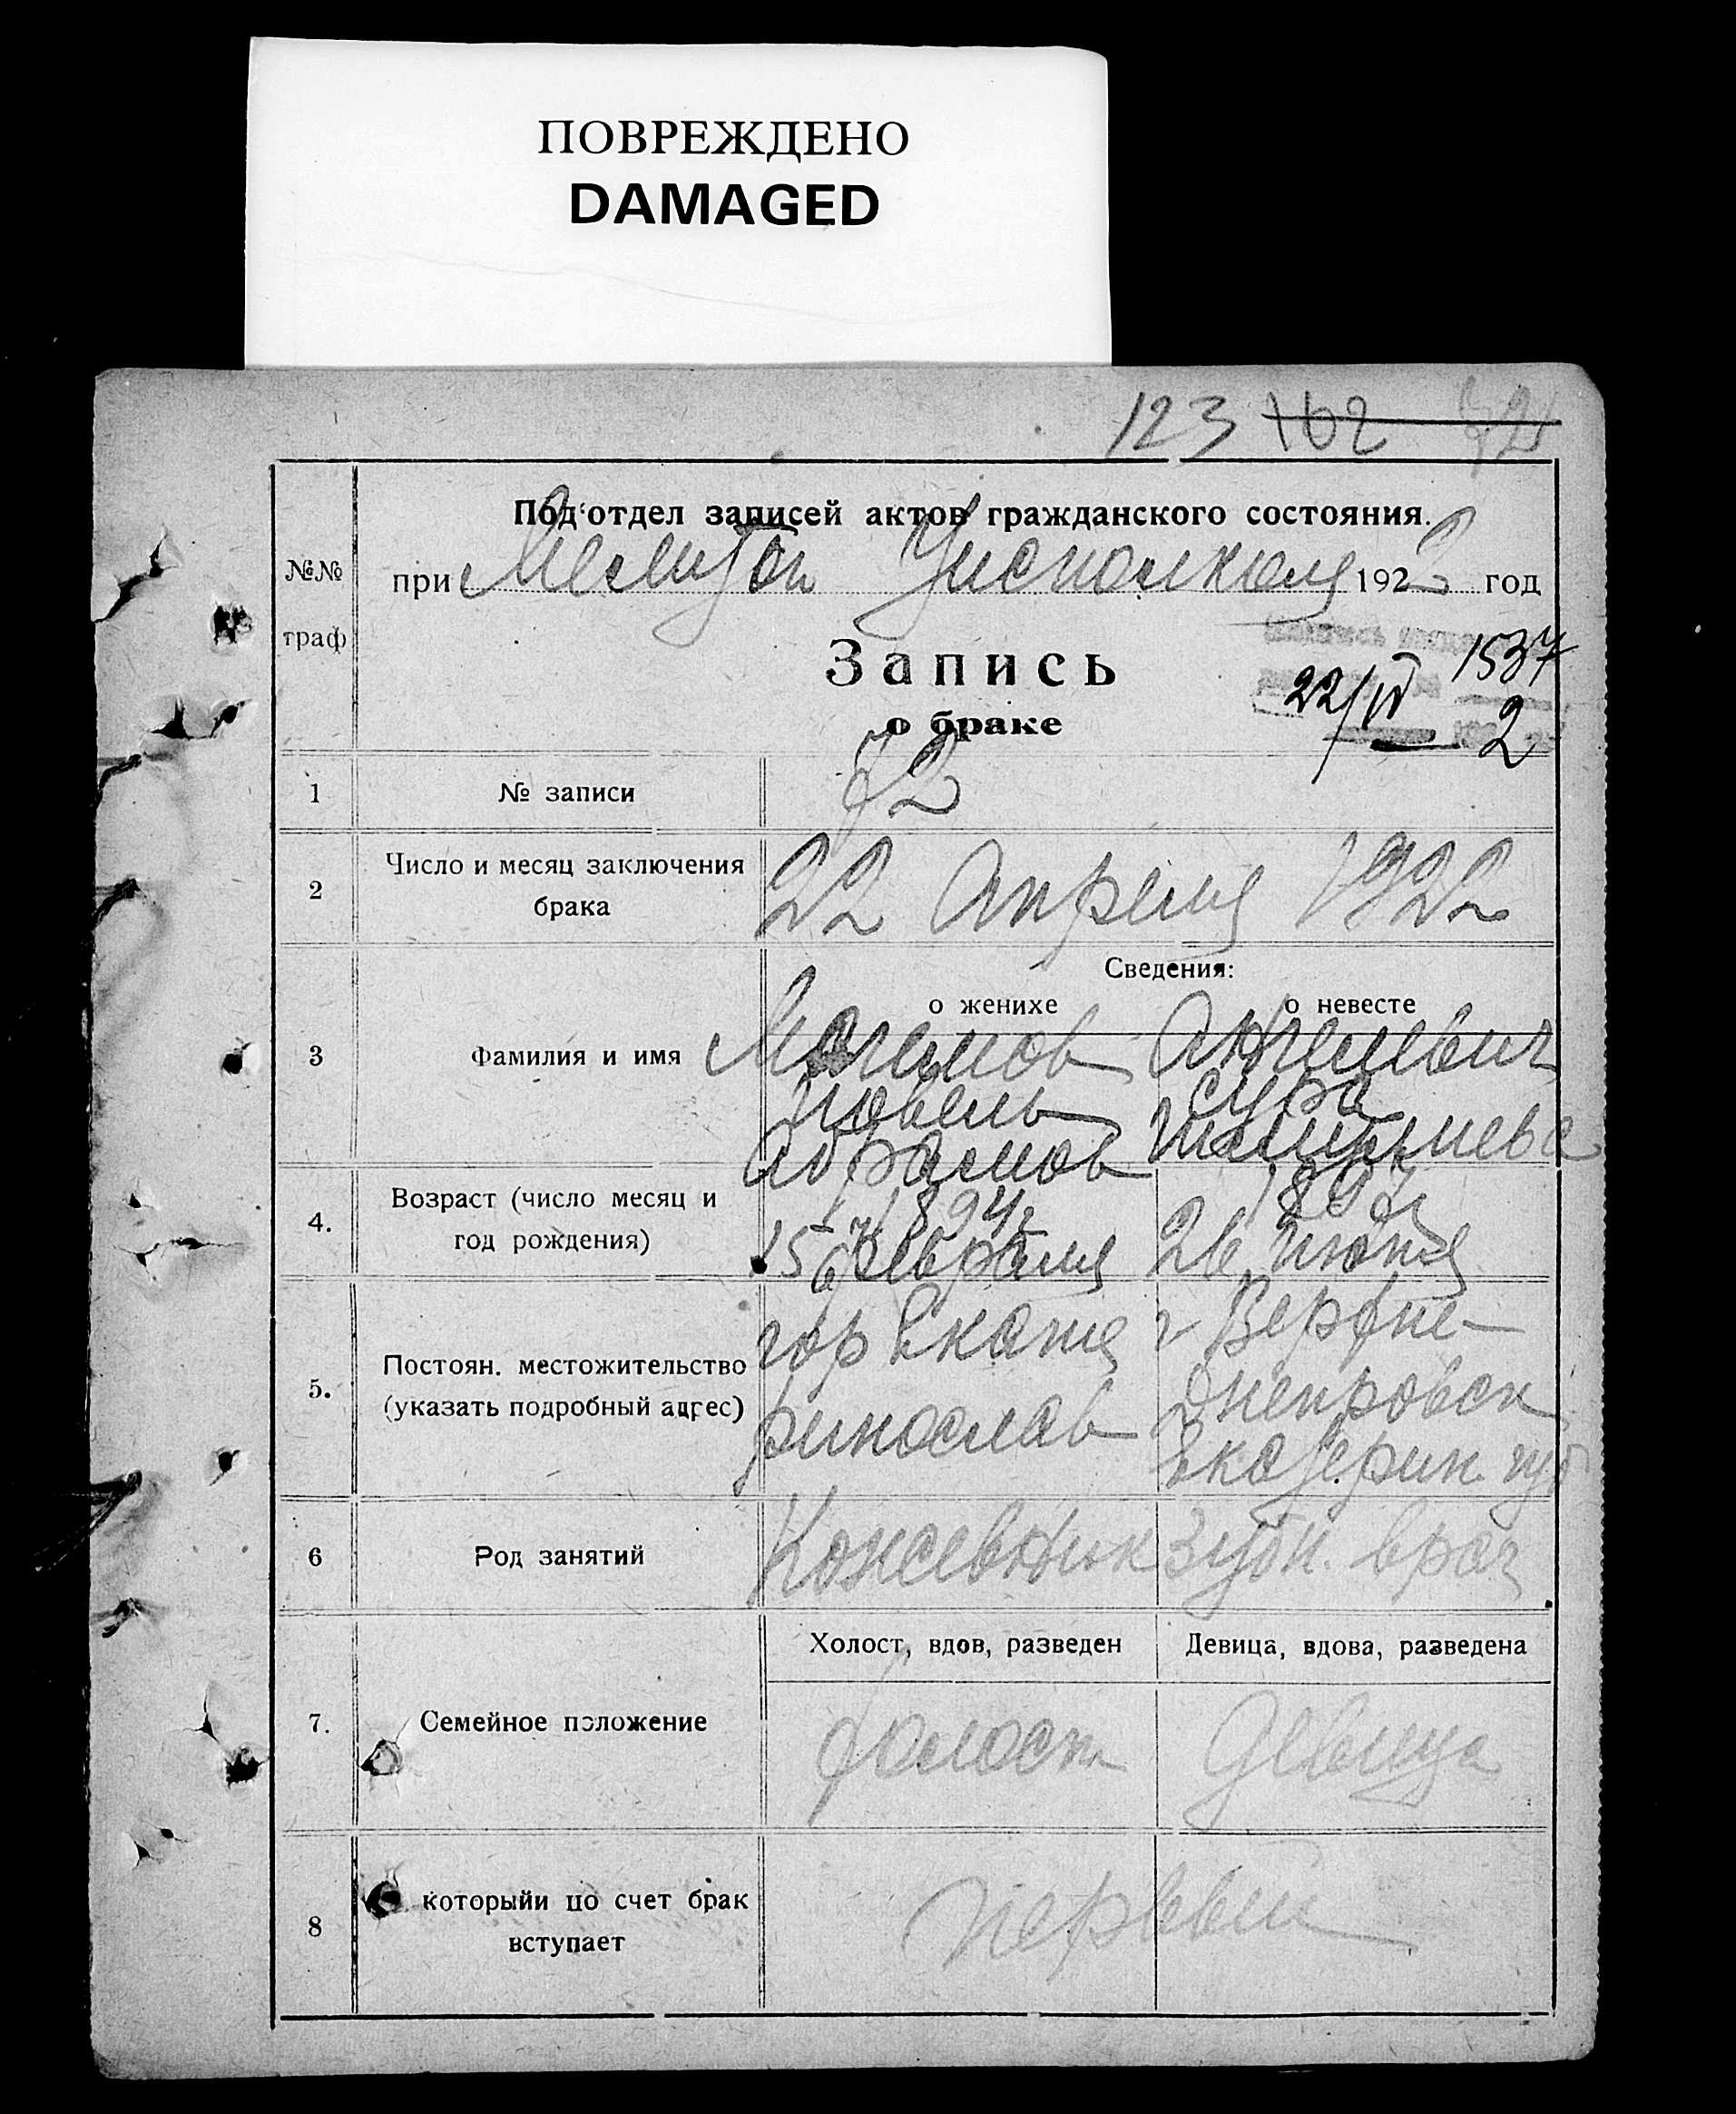 ПОВРЕЖДЕНО
DAMAGED
123 162 72
Под'отдел записей актов гражданского состояния.
№№ граф
при Исполкома 1922 год
Запись
о браке
1537
22/IV 2
1 № записи 72
2 Число и месяц заключения брака 22 Апреля 1922
Сведения:
о женихе о невесте
3 Фамилия и имя
Абрамов Сура
4. Возраст (число месяц и год рождения)
1894 г. 1897
15 февраля 26
5. Постоян. местожительство (указать подробный адрес)
гор Екате г Верхне-
ринослав Днепровск
Екатерин. губ
6 Род занятий Кожевник Зубн. врач
Холост, вдов, разведен Девица, вдова, разведена
7. Семейное положение холост девица
8 которыйи по счет брак вступает первый